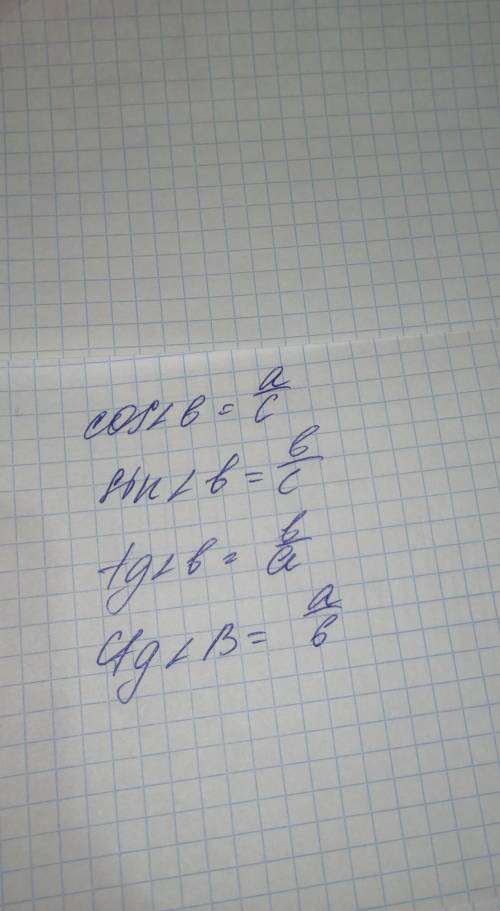 cos∠в = a/c
sin∠в = в/c
tg∠в = в/a
ctg∠B = a/в